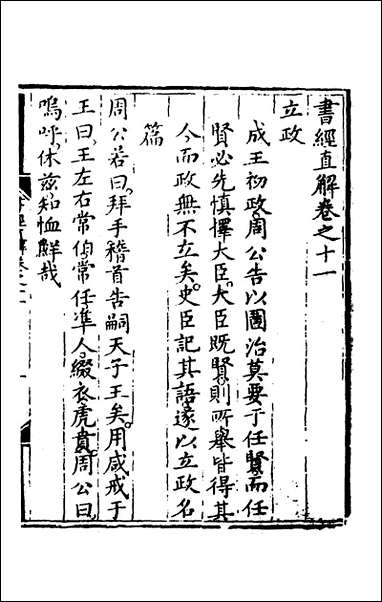 書經直解卷之十一
立政
成王初政周公告以圖治莫要于任賢而任
賢必先慎擇大臣大臣既賢則所舉皆得其
今而政無不立矣史臣記其語遂以立政名
篇
周公若曰拜手稽首告嗣天子王矣用咸戒于
王曰王左右常伯常任準人綴衣虎賁周公曰
嗚呼休茲知恤鮮哉